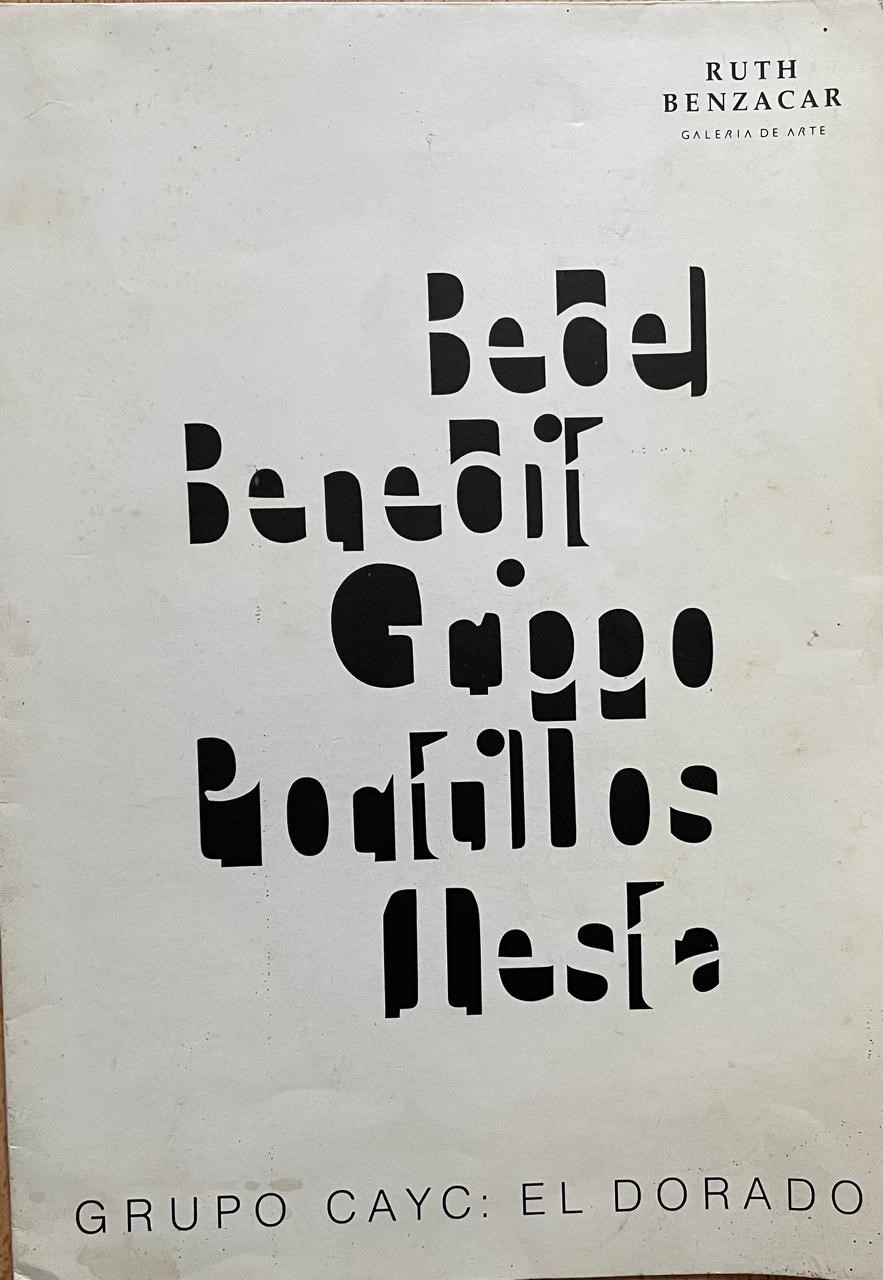 RUTH
BENZACAR
GALERIA DE ARTE
Bedel
Benedit
Grippo
Portillos
Testa
GRUPO CAYC: EL DORADO